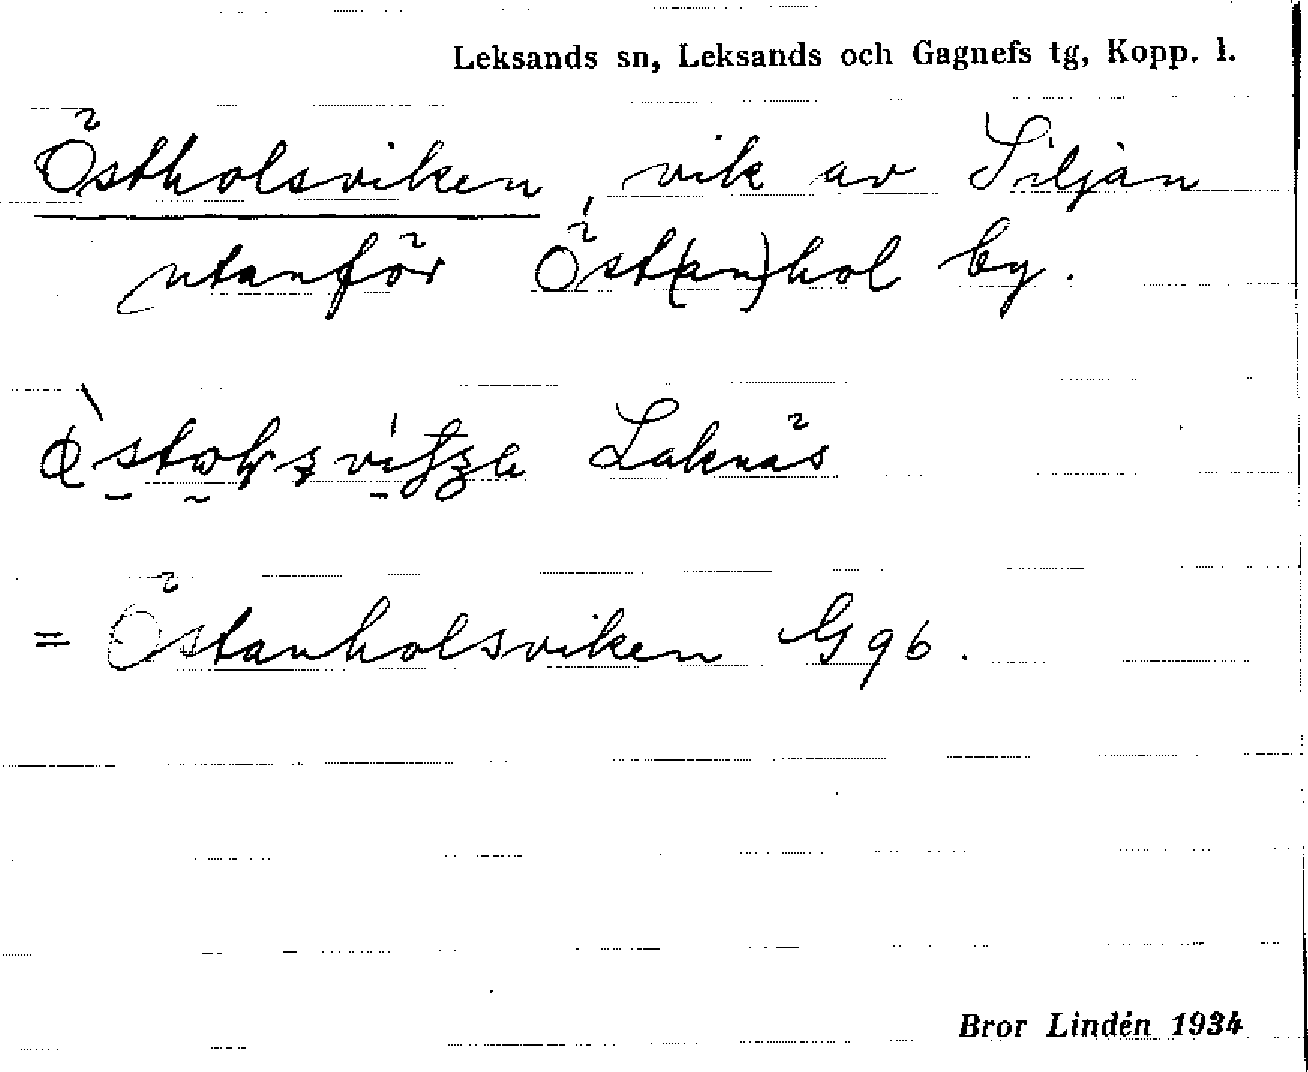 Leksands sn, Leksands och Gagnefs tg, Kopp. l.
Östholsviken, vik av Siljan
utanför Öst(an)hol by.
Laknäs
= Östanholsviken G 96.
Bror Lindén 1934